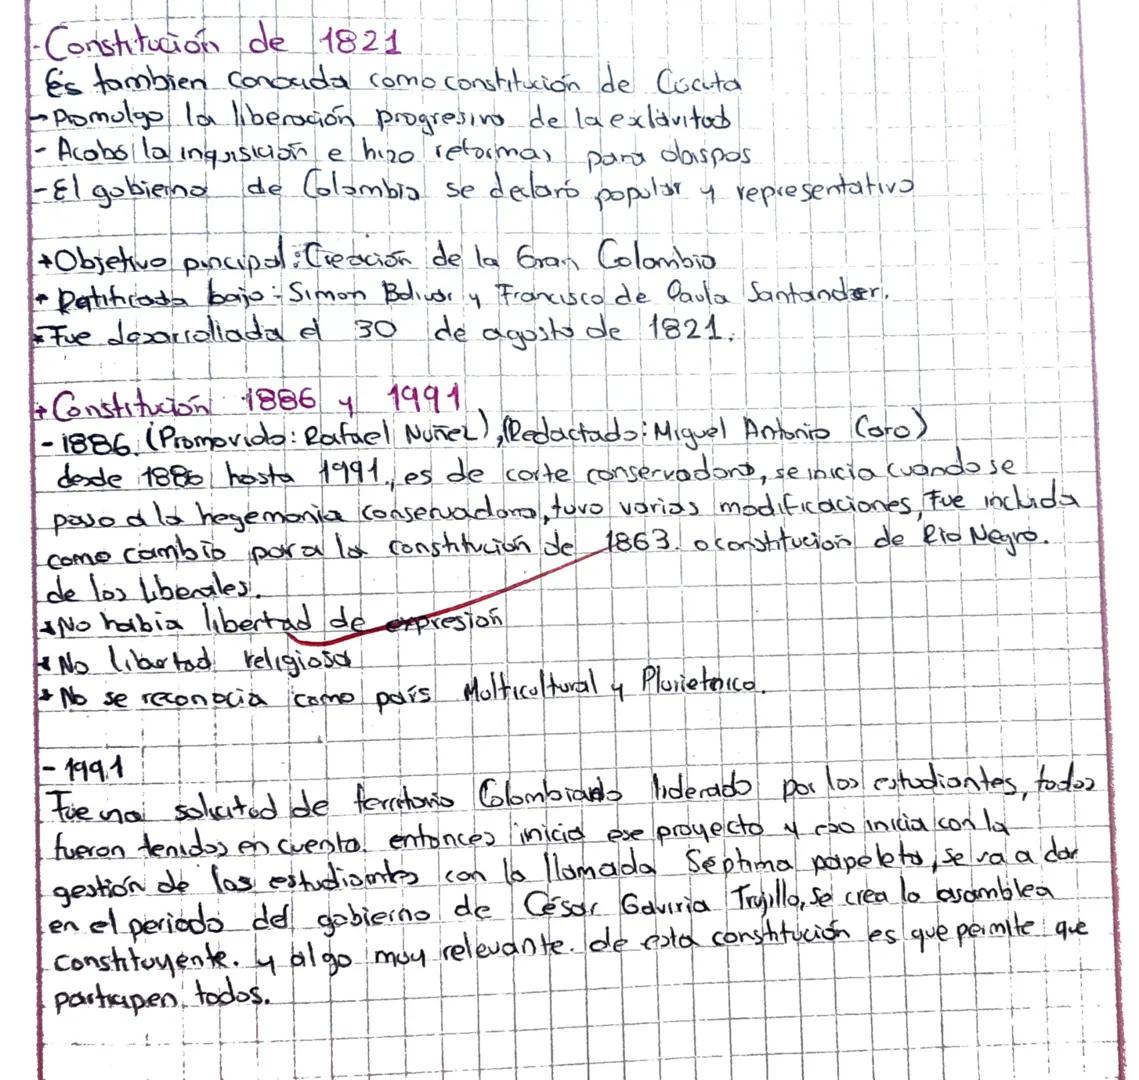 - Constitución de 1821
És tambien conocida como constitución de Cúcuta
→ Promulgo la liberación progresiva de la exlavitud
- Acabó la inquisición e hizo reformas para obispos
- El gobierno de Colombia se declaró popular y representativo
* Objetivo principal: Creación de la Gran Colombia
* Ratificada bajo: Simon Bolivar y Francisco de Paula Santander.
* Fue desarrollada el 30 de agosto de 1821.
+ Constitución 1886 y 1991
- 1886. (Promovido: Rafael Nuñez), (Redactado: Miguel Antonio Caro)
desde 1886 hasta 1991, es de corte conservadora, se inicia cuando se
paso a la hegemonia conservadora, tuvo varias modificaciones, fue incluida
como cambio para la constitución de 1863. o constitucion de Rio Negro.
de los liberales.
* No habia libertad de expresión
* No libertad religiosa
* No se reconocia como país Multicultural y Plurietnico.
- 1991
Fue una solicitud de territorio Colombiano liderado por los estudiantes, todos
fueron tenidos en cuenta. entonces inicia ese proyecto y eso inicia con la
gestión de los estudiantes con la llamada Séptima papeleta, se va a dar
en el periodo del gobierno de César Gaviria Trujillo, se crea la asamblea
constituyente. y algo muy relevante. de esta constitución es que permite que
participen todos.